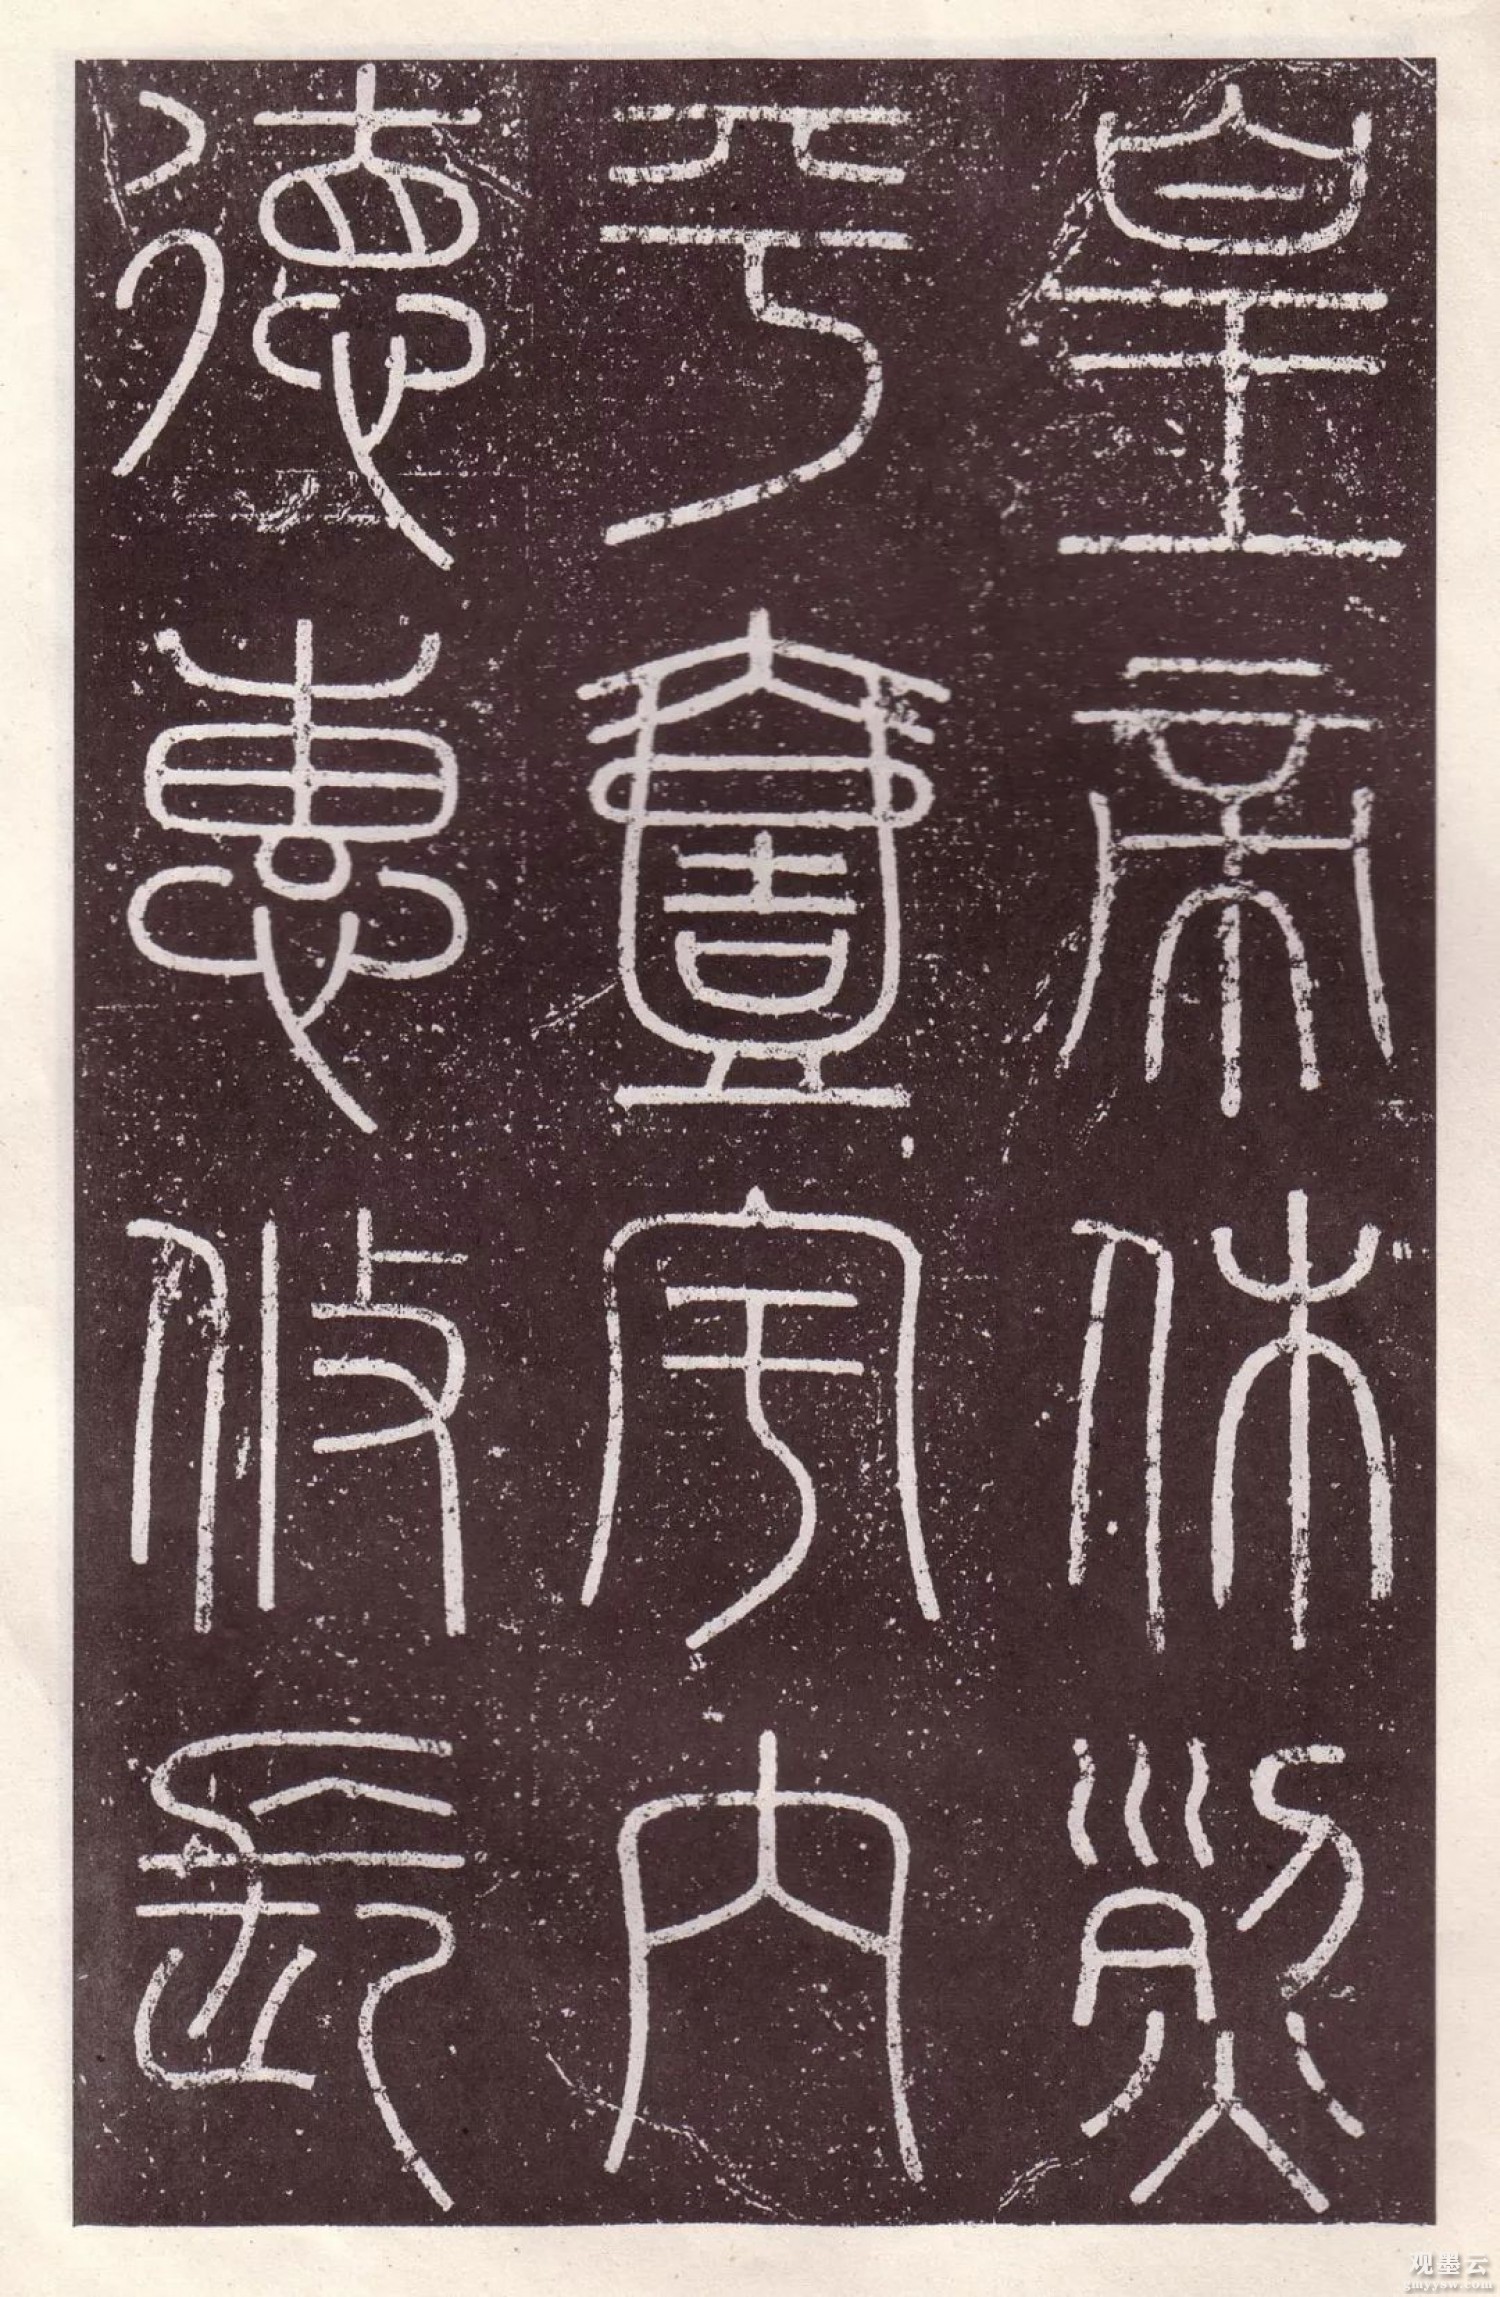 皇帝休烈
平壹宇内
德惠攸長
观墨云
gmyysw.com